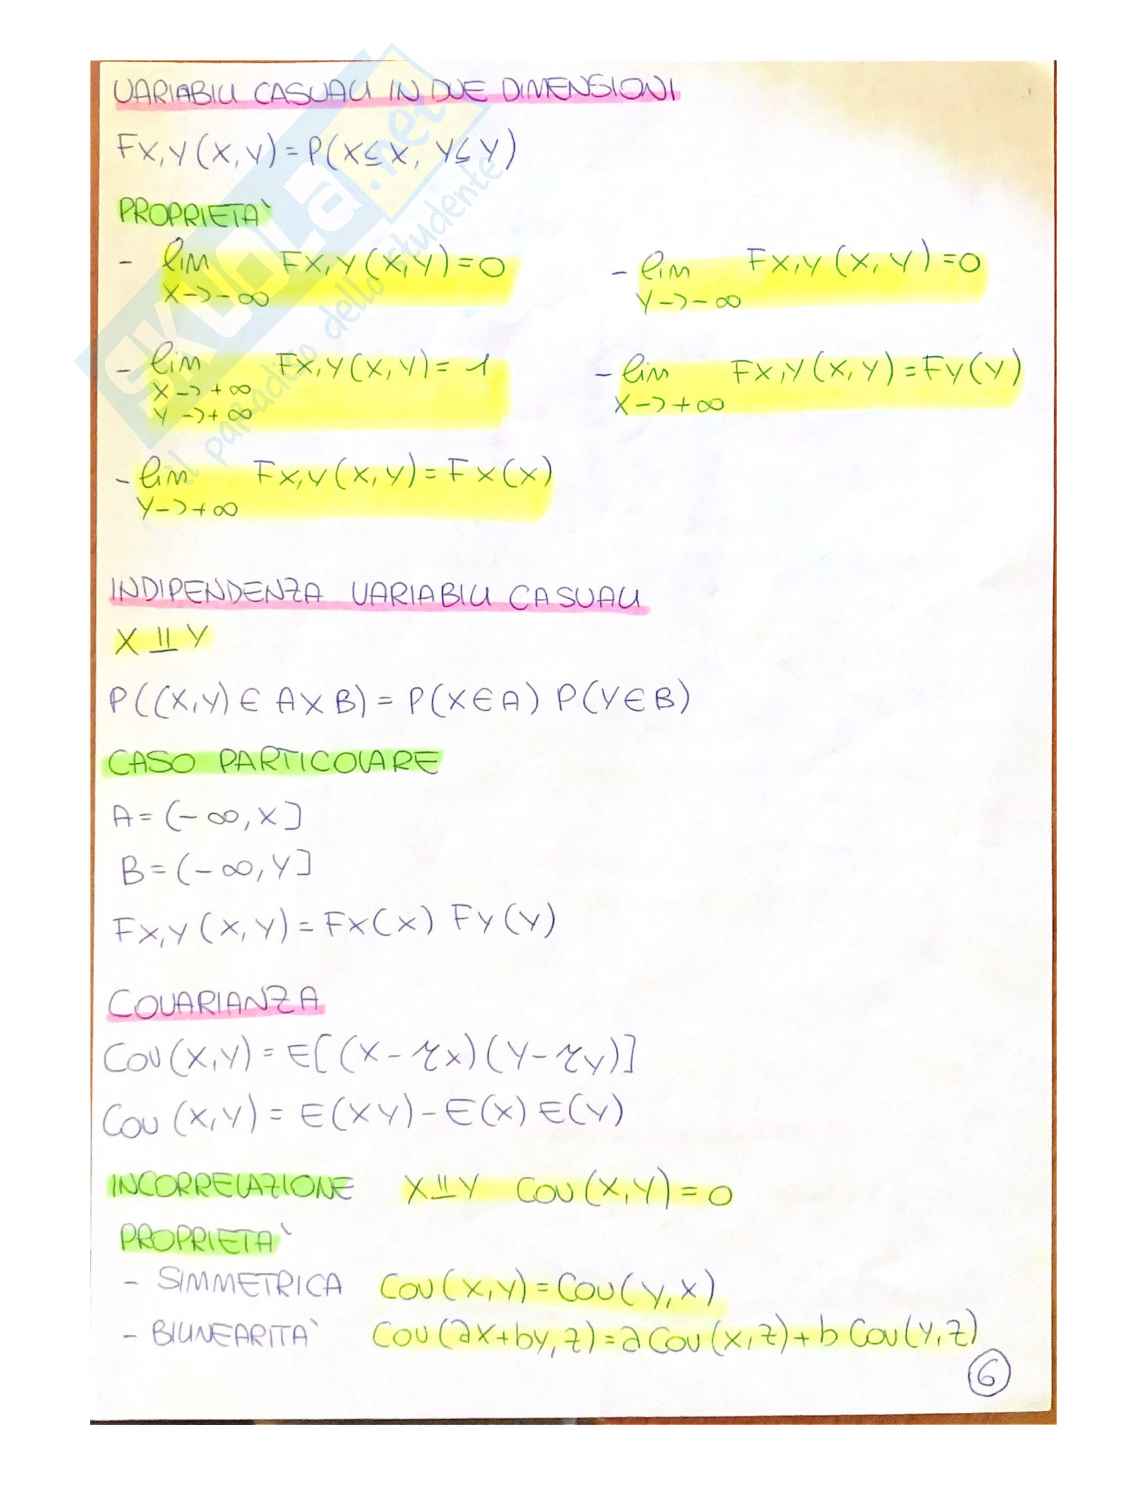 VARIABILI CASUALI IN DUE DIMENSIONI
FX,Y(X,Y)=P(X≤X, Y≤Y)
PROPRIETA`
- lim FX,Y(X,Y)=0 - lim FX,Y(X,Y)=0
X->-∞ Y->-∞
- lim FX,Y(X,Y)=1 - lim FX,Y(X,Y)=FY(Y)
X->+∞ X->+∞
Y->+∞
- lim FX,Y(X,Y)=FX(X)
Y->+∞
INDIPENDENZA VARIABILI CASUALI
X ⫫ Y
P((X,Y)∈ A×B)=P(X∈A) P(Y∈B)
CASO PARTICOLARE
A=(-∞,X]
B=(-∞,Y]
FX,Y(X,Y)=FX(X) FY(Y)
COVARIANZA
COV(X,Y)=E[(X-μX)(Y-μY)]
COV(X,Y)=E(XY)-E(X)E(Y)
INCORRELAZIONE X⫫Y COV(X,Y)=0
PROPRIETA`
- SIMMETRICA COV(X,Y)=COV(Y,X)
- BILINEARITA` COV(aX+bY,Z)=aCOV(X,Z)+bCOV(Y,Z)
6
SKUOLA.net
il paradiso dello studente